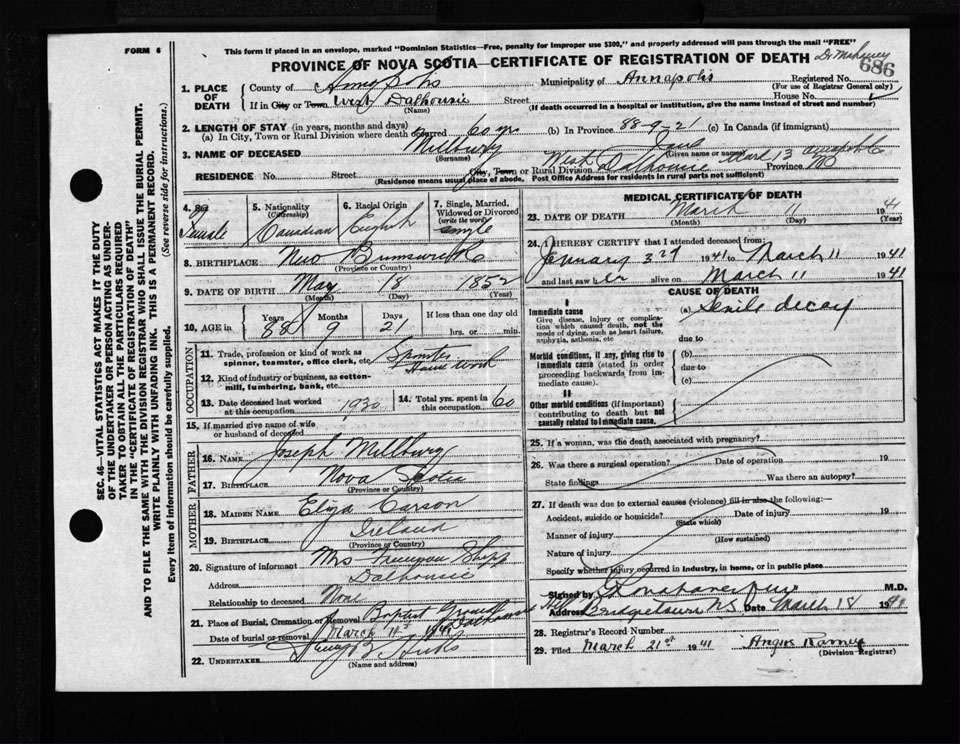 FORM 6
This form if placed in an envelope, marked "Dominion Statistics—Free, penalty for improper use $300," and properly addressed will pass through the mail "FREE"
PROVINCE OF NOVA SCOTIA—CERTIFICATE OF REGISTRATION OF DEATH
686
1. PLACE OF DEATH
County of Annapolis Municipality of Annapolis Registered No.
(For use of Registrar General only)
If in City or Town West Dalhousie Street House No.
(Name) (If death occurred in a hospital or institution, give the name instead of street and number)
2. LENGTH OF STAY (in years, months and days)
(a) In City, Town or Rural Division where death occurred 60 yrs (b) In Province 88-9-21 (c) In Canada (if immigrant)
3. NAME OF DECEASED Millbury Jane
(Surname) (Given name or names)
RESIDENCE No. Street City, Town or Rural Division West Dalhousie Ward 13 Province Annapolis Co
(Residence means usual place of abode. Post Office Address for residents in rural parts not sufficient)
4. Sex
Female
5. Nationality
(Citizenship)
Canadian
6. Racial Origin
English
7. Single, Married, Widowed or Divorced
(write the word)
Single
8. BIRTHPLACE New Brunswick
(Province or Country)
9. DATE OF BIRTH May 18 1852
(Month) (Day) (Year)
10. AGE in Years Months Days If less than one day old
88 9 21 hrs. or min.
OCCUPATION
11. Trade, profession or kind of work as spinner, teamster, office clerk, etc. Spinster
House Work
12. Kind of industry or business, as cotton-mill, lumbering, bank, etc.
13. Date deceased last worked at this occupation 1930
14. Total yrs. spent in this occupation 60
15. If married give name of wife or husband of deceased
FATHER
16. NAME Joseph Millbury
17. BIRTHPLACE Nova Scotia
(Province or Country)
MOTHER
18. MAIDEN NAME Eliza Carson
19. BIRTHPLACE Ireland
(Province or Country)
20. Signature of informant Mrs
Address Dalhousie
Relationship to deceased None
21. Place of Burial, Cremation or Removal Baptist Ground Dalhousie
Date of burial or removal March 1941
22. UNDERTAKER Hicks
(Name and address)
MEDICAL CERTIFICATE OF DEATH
23. DATE OF DEATH March 11 194
(Month) (Day) (Year)
24. I HEREBY CERTIFY that I attended deceased from:
January 3rd 1941 to March 11 1941
and last saw her alive on March 11 1941
CAUSE OF DEATH
I
Immediate cause
Give disease, injury or complication which caused death, not the mode of dying, such as heart failure, asphyxia, asthenia, etc
(a) Senile decay
due to
Morbid conditions, if any, giving rise to immediate cause (stated in order proceeding backwards from immediate cause).
(b)
due to
(c)
II
Other morbid conditions (if important) contributing to death but not causally related to immediate cause.
25. If a woman, was the death associated with pregnancy?
26. Was there a surgical operation? Date of operation 19
State findings Was there an autopsy?
27. If death was due to external causes (violence) fill in also the following:—
Accident, suicide or homicide? Date of injury 19
(State which)
Manner of injury
(How sustained)
Nature of injury
Specify whether injury occurred in industry, in home, or in public place
Signed by M.D.
Address Bridgetown NS Date March 18 1941
28. Registrar's Record Number
29. Filed March 21st 1941 Angus Ramey
(Division-Registrar)
SEC. 46—VITAL STATISTICS ACT MAKES IT THE DUTY
OF THE UNDERTAKER OR PERSON ACTING AS UNDER-
TAKER TO OBTAIN ALL THE PARTICULARS REQUIRED
IN THE "CERTIFICATE OF REGISTRATION OF DEATH"
AND TO FILE THE SAME WITH THE DIVISION REGISTRAR WHO SHALL ISSUE THE BURIAL PERMIT.
WRITE PLAINLY WITH UNFADING INK. THIS IS A PERMANENT RECORD.
Every item of information should be carefully supplied. (See reverse side for instructions.)